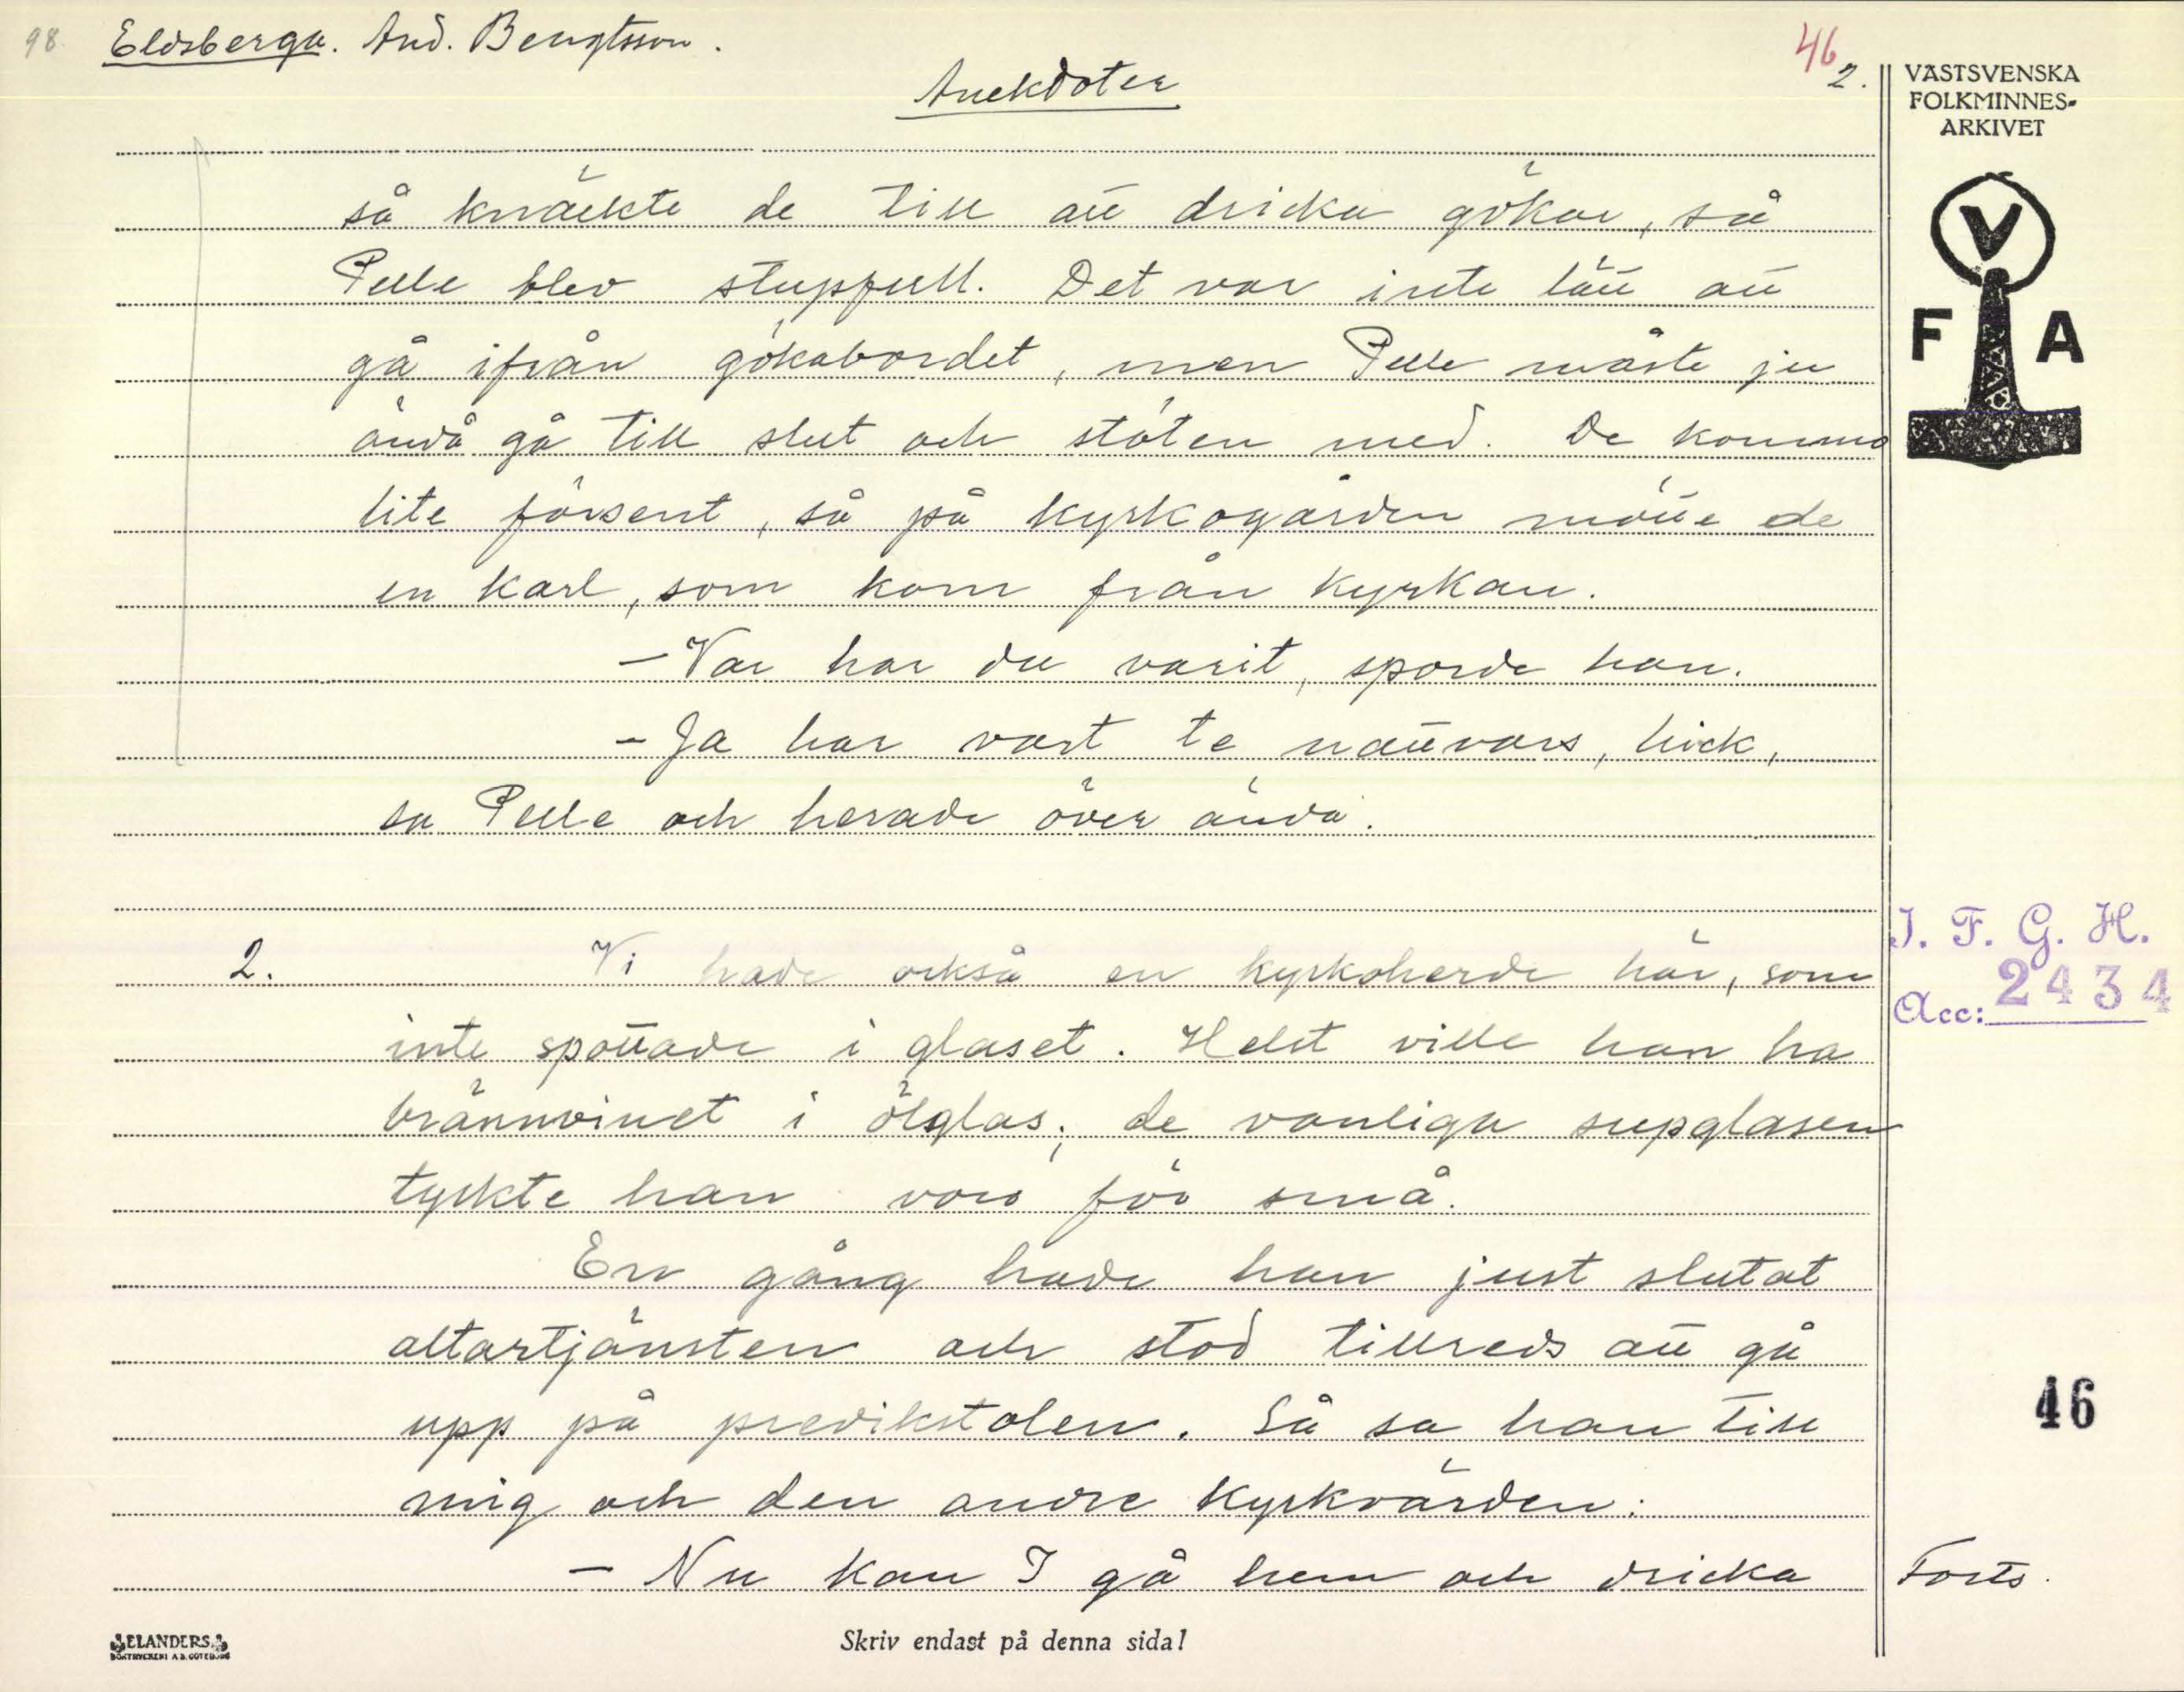 98. Eldsberga. And. Bengtsson.
46
2.
Anekdoter
VÄSTSVENSKA
FOLKMINNES-
ARKIVET
V
F A
så knäckte de till att dricka gökar, så
Pelle blev stuppfull. Det var inte lätt att
gå ifrån gökabordet, men Pelle måste ju
ändå gå till slut och stöten med. De kommo
lite försent, så på kyrkogården mötte de
en karl, som kom från kyrkan.
- Var har du varit, sporde han.
- Ja har vart te nattvars, hick,
sa Pelle och herade över ända.
2. Vi hade också en kyrkoherde här, som
inte spottade i glaset. Helst ville han ha
brännvinet i ölglas; de vanliga supglasen
tyckte han voro för små.
En gång hade han just slutat
altartjänsten och stod tillreds att gå
upp på predikstolen. Så sa han till
mig och den andre kyrkvärden:
- Nu kan I gå hem och dricka
I. F. G. H.
Acc: 2434
46
Forts.
ELANDERS
BOKTRYCKERI A.B. GÖTEBORG
Skriv endast på denna sida!